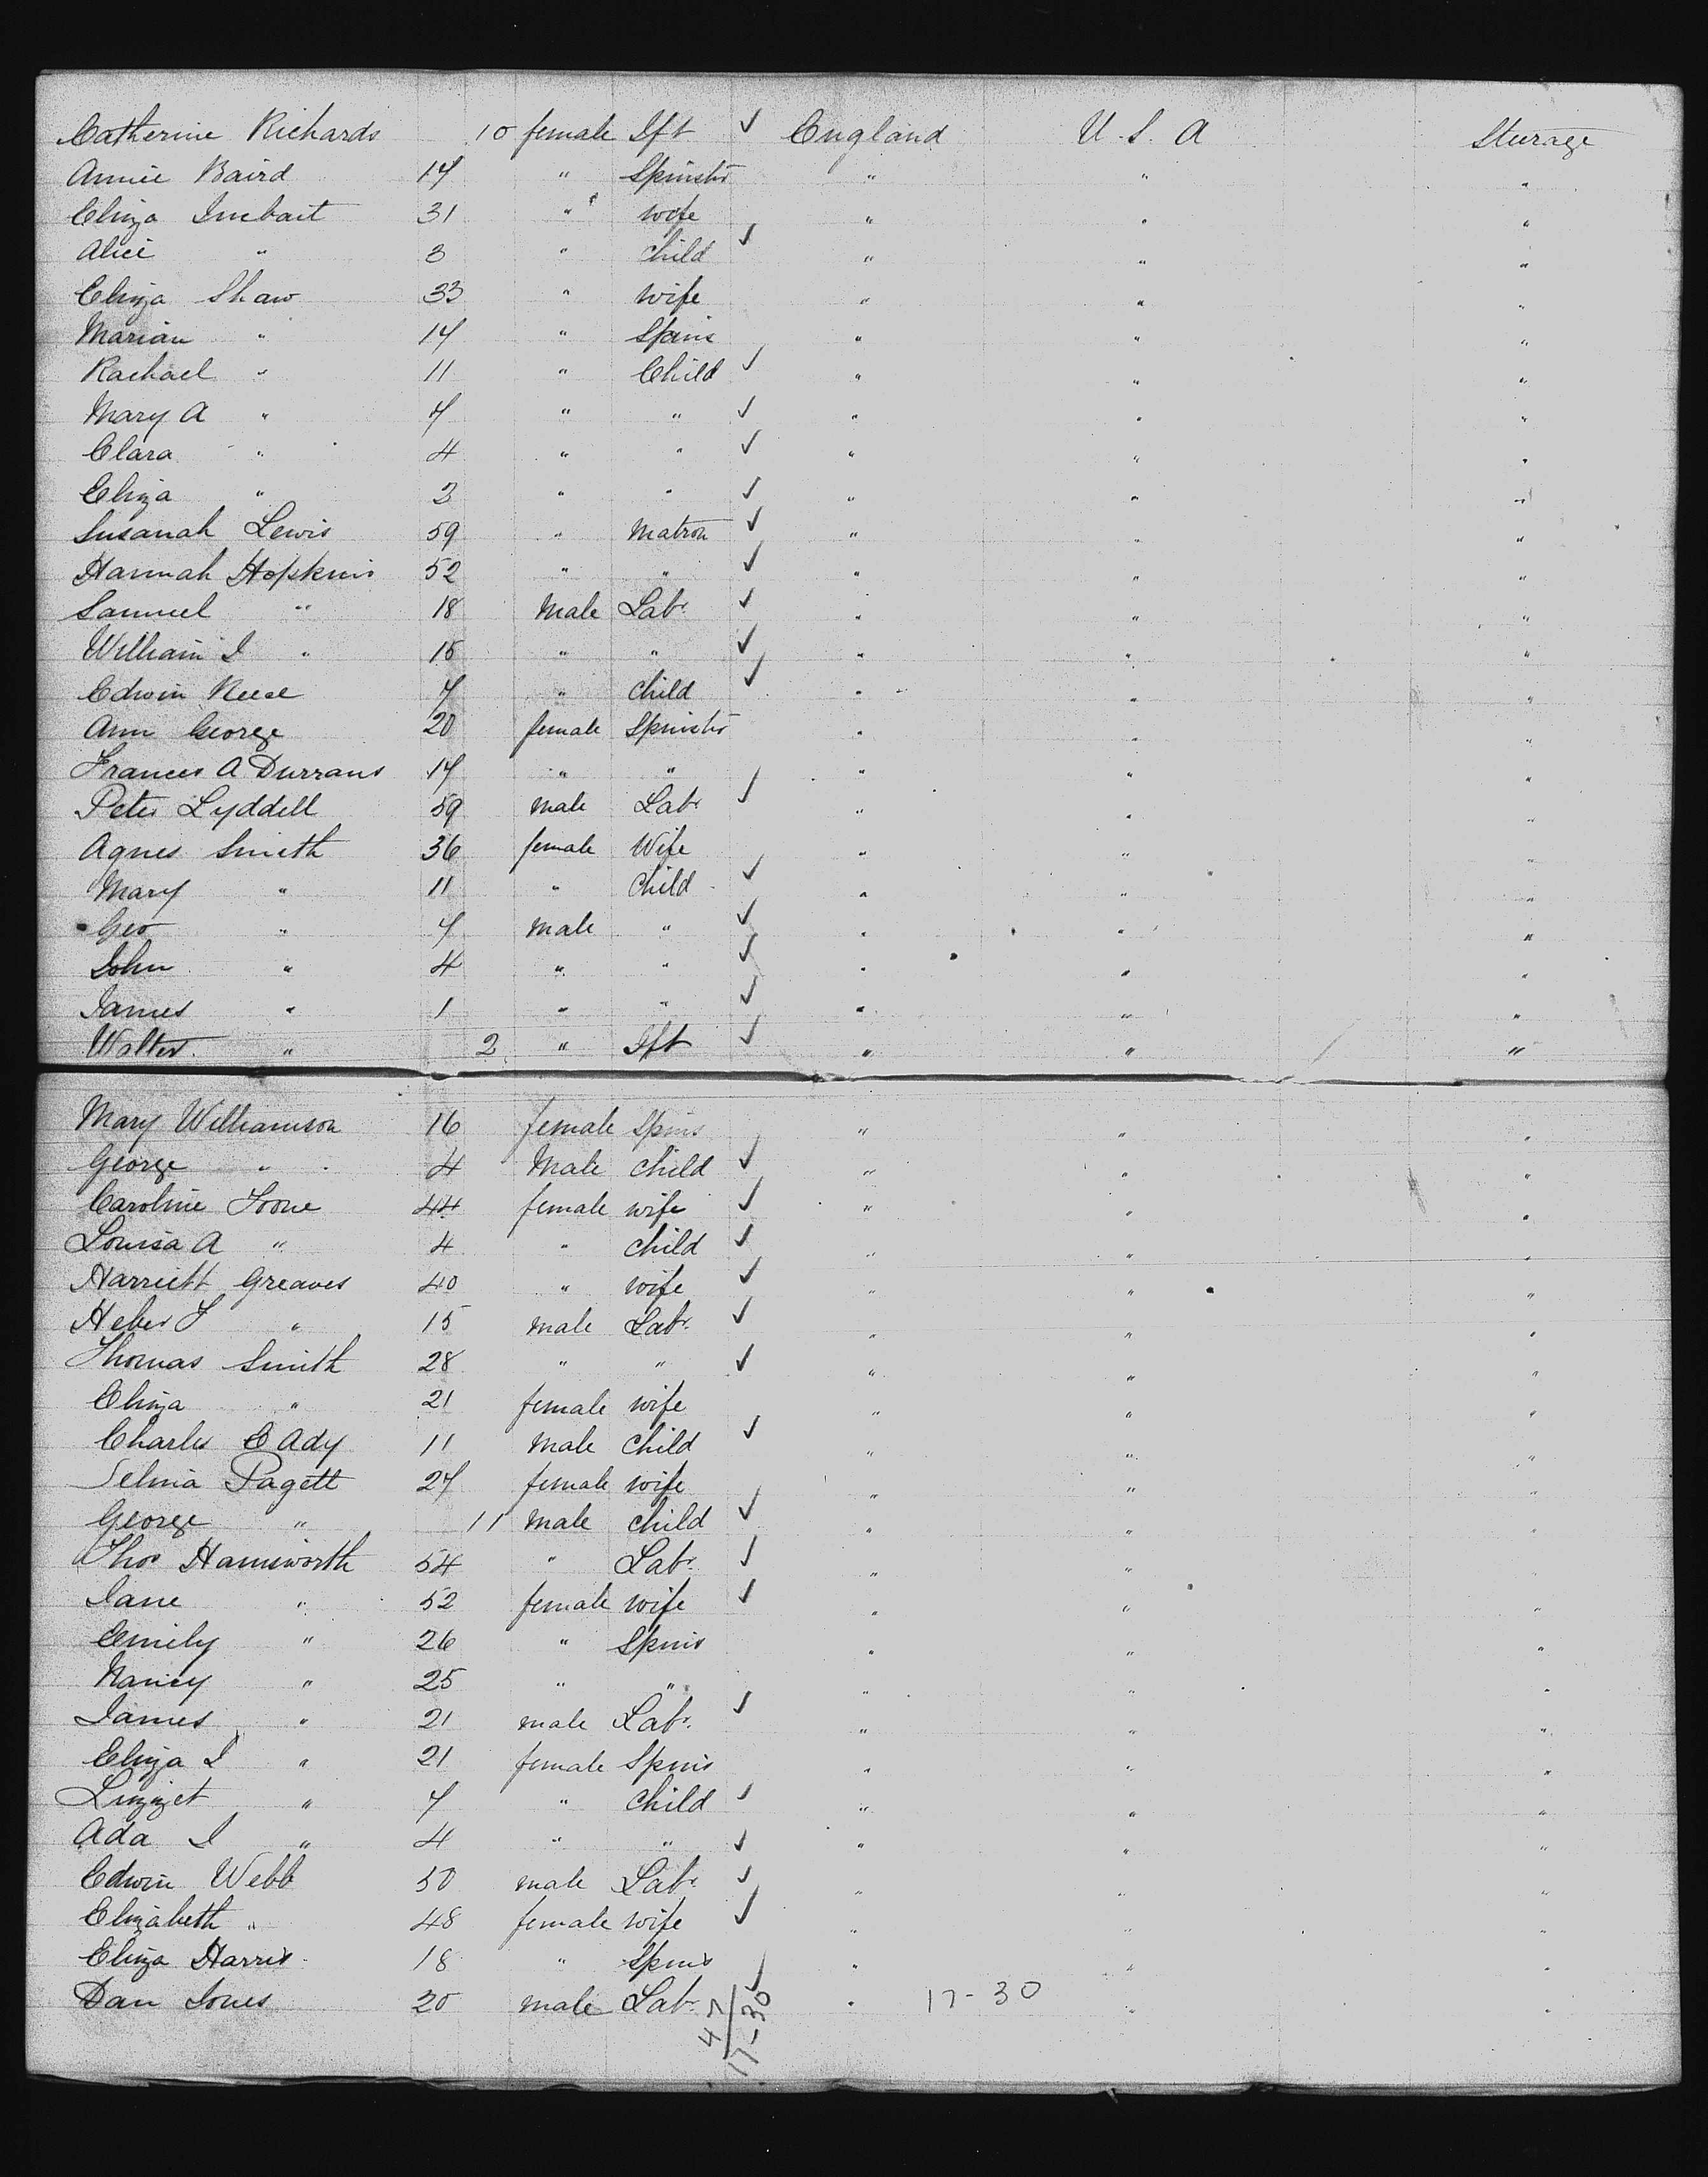 Catherine Richards 10 female Ift ✓ England U. S. A Steerage
Annie Baird 17 " Spinstr " " "
Eliza Imbait 31 " wife " " "
Alice " 3 " child ✓ " " "
Eliza Shaw 33 " wife " " "
Marian " 17 " Spins " " "
Rachael " 11 " Child ✓ " " "
Mary A " 7 " " ✓ " " "
Clara " 4 " " ✓ " " "
Eliza " 2 " " ✓ " " "
Susanah Lewis 59 " Matron ✓ " " "
Hannah Hopkins 52 " " ✓ " " "
Samuel " 18 Male Labr ✓ " " "
William J " 15 " " ✓ " " "
Edwin Reese 7 " child ✓ " " "
Ann George 20 female Spinstr " " "
Frances A Durrans 17 " " " " "
Peter Lyddell 59 male Labr ✓ " " "
Agnes Smith 36 female Wife " " "
Mary " 11 " child ✓ " " "
Geo " 7 male " ✓ " " "
John " 4 " " ✓ " " "
James " 1 " " ✓ " " "
Walter " 2 " Ift ✓ " " "
Mary Williamson 16 female Spins " " "
George " 4 Male child ✓ " " "
Caroline Toone 44 female wife ✓ " " "
Louisa A " 4 " child ✓ " " "
Harriett Greaves 40 " wife ✓ " " "
Heber J " 15 male Labr ✓ " " "
Thomas Smith 28 " " ✓ " " "
Eliza " 21 female wife " " "
Charles E Ady 11 male child ✓ " " "
Selina Pagett 27 female wife " " "
George " 11 male child ✓ " " "
Thos Hainsworth 54 " Labr ✓ " " "
Jane " 52 female wife ✓ " " "
Emily " 26 " Spins " " "
Nancy " 25 " " " " "
James " 21 male Labr ✓ " " "
Eliza J " 21 female Spins " " "
Lizzet " 7 " child ✓ " " "
Ada J " 4 " " ✓ " " "
Edwin Webb 50 male Labr ✓ " " "
Elizabeth " 48 female wife ✓ " " "
Eliza Harris 18 " Spins " " "
Dan Jones 20 male Labr ✓ " 17-30 " "
47
17-30